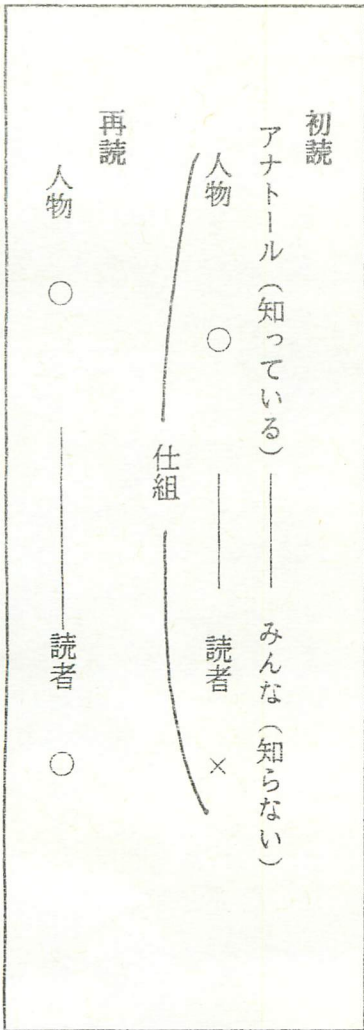 初読
アナトール（知っている）――みんな（知らない）
人物　○――読者　×
仕組
再読
人物　○――読者　○